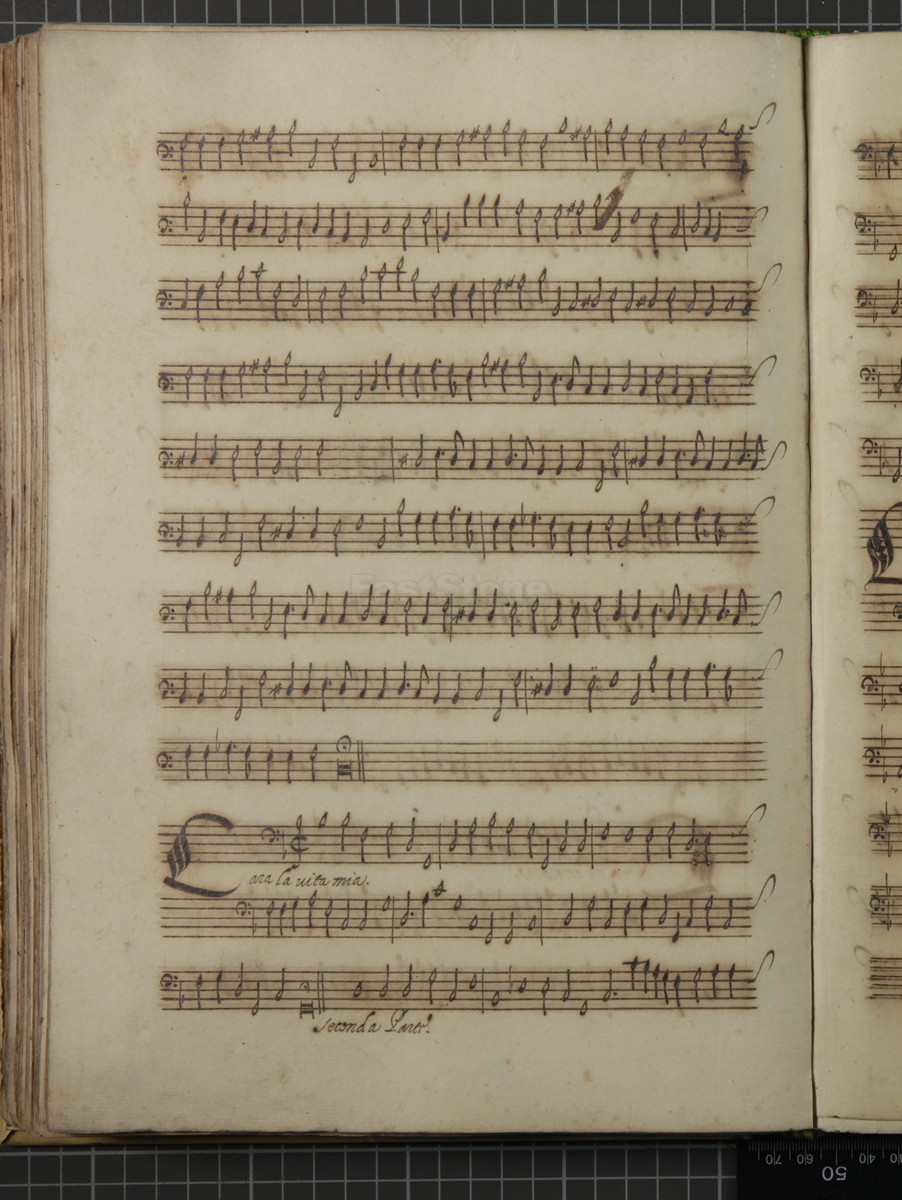 FastStone
Cara la uita mia.
Seconda Parte.
70 60 50 40